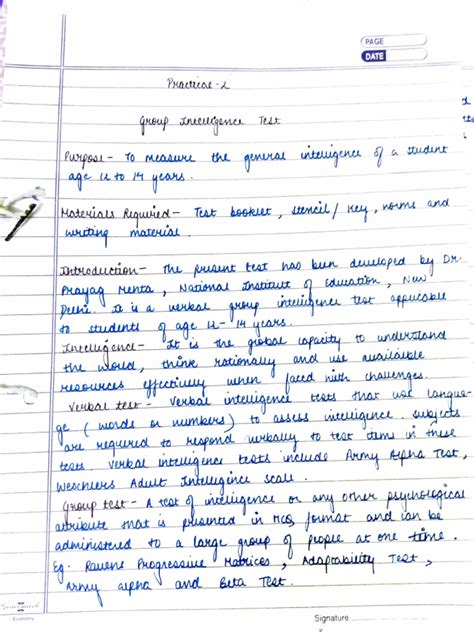 PAGE
DATE
Practical-2
Group Intelligence Test
Purpose- To measure the general intelligence of a student
age 12 to 14 years.
Materials Required- Test booklet, stencil/key, norms and
writing material.
Introduction- The present test has been developed by Dr.
Prayag Mehta, National Institute of Education, New
Delhi. It is a verbal group intelligence test applicable
to students of age 12-14 years.
Intelligence- It is the global capacity to understand
the world, think rationally and use available
resources effectively when faced with challenges.
Verbal test- Verbal intelligence tests that use langua-
ge (words or numbers) to assess intelligence. subjects
are required to respond verbally to test items in these
tests. Verbal intelligence tests include Army Alpha Test,
Weschlers Adult Intelligence scale.
Group test- A test of intelligence or any other psychological
attribute that is presented in MCQ format and can be
administered to a large group of people at one time.
Eg. Ravens Progressive Matrices, Adaptability Test,
Army alpha and Beta Test.
Signature